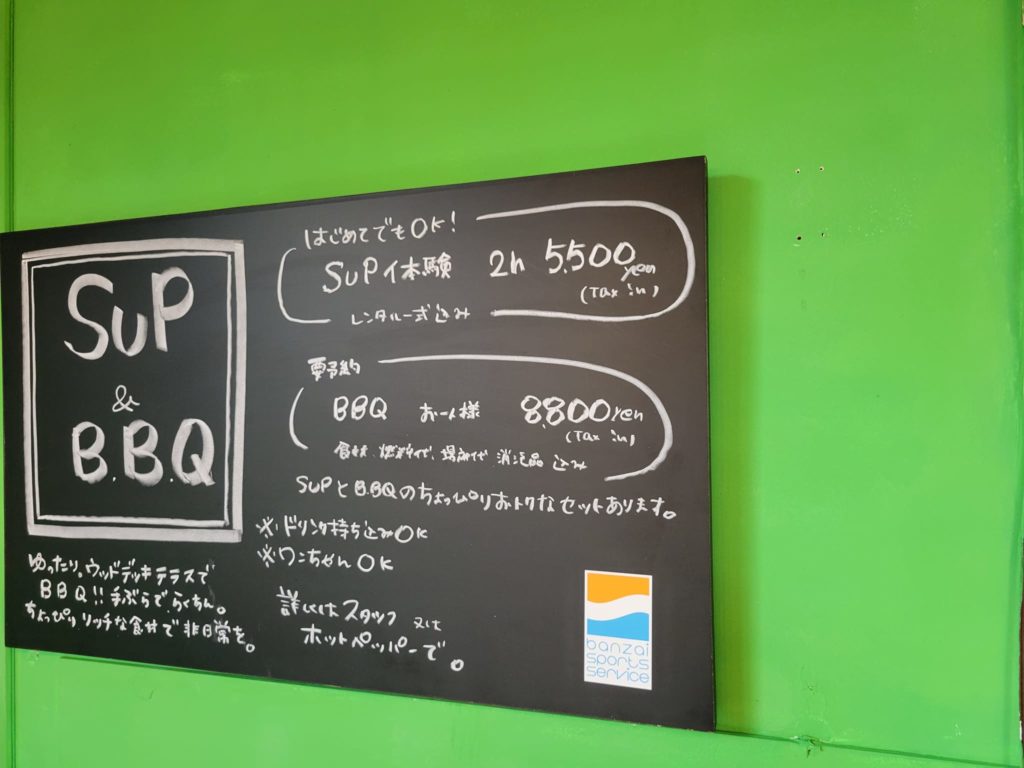 SuP
&
B.B.Q
ゆったり。ウッドデッキテラスで
BBQ!!手ぶらで、らくちん。
ちょっぴり、リッチな食材で非日常を。
はじめてでもOK!
SuP体験 2h 5,500yen
(Tax in)
レンタル一式込み
要予約
BBQ お一人様 8,800yen
(Tax in)
食材、燃料代、場所代、消耗品 込み
SUPとB.BQのちょっぴりおトクなセットあります。
※ドリンク持ち込みOK
※ワンちゃんOK
詳しくはスタッフ 又は
ホットペッパーで。
banzai
sports
service